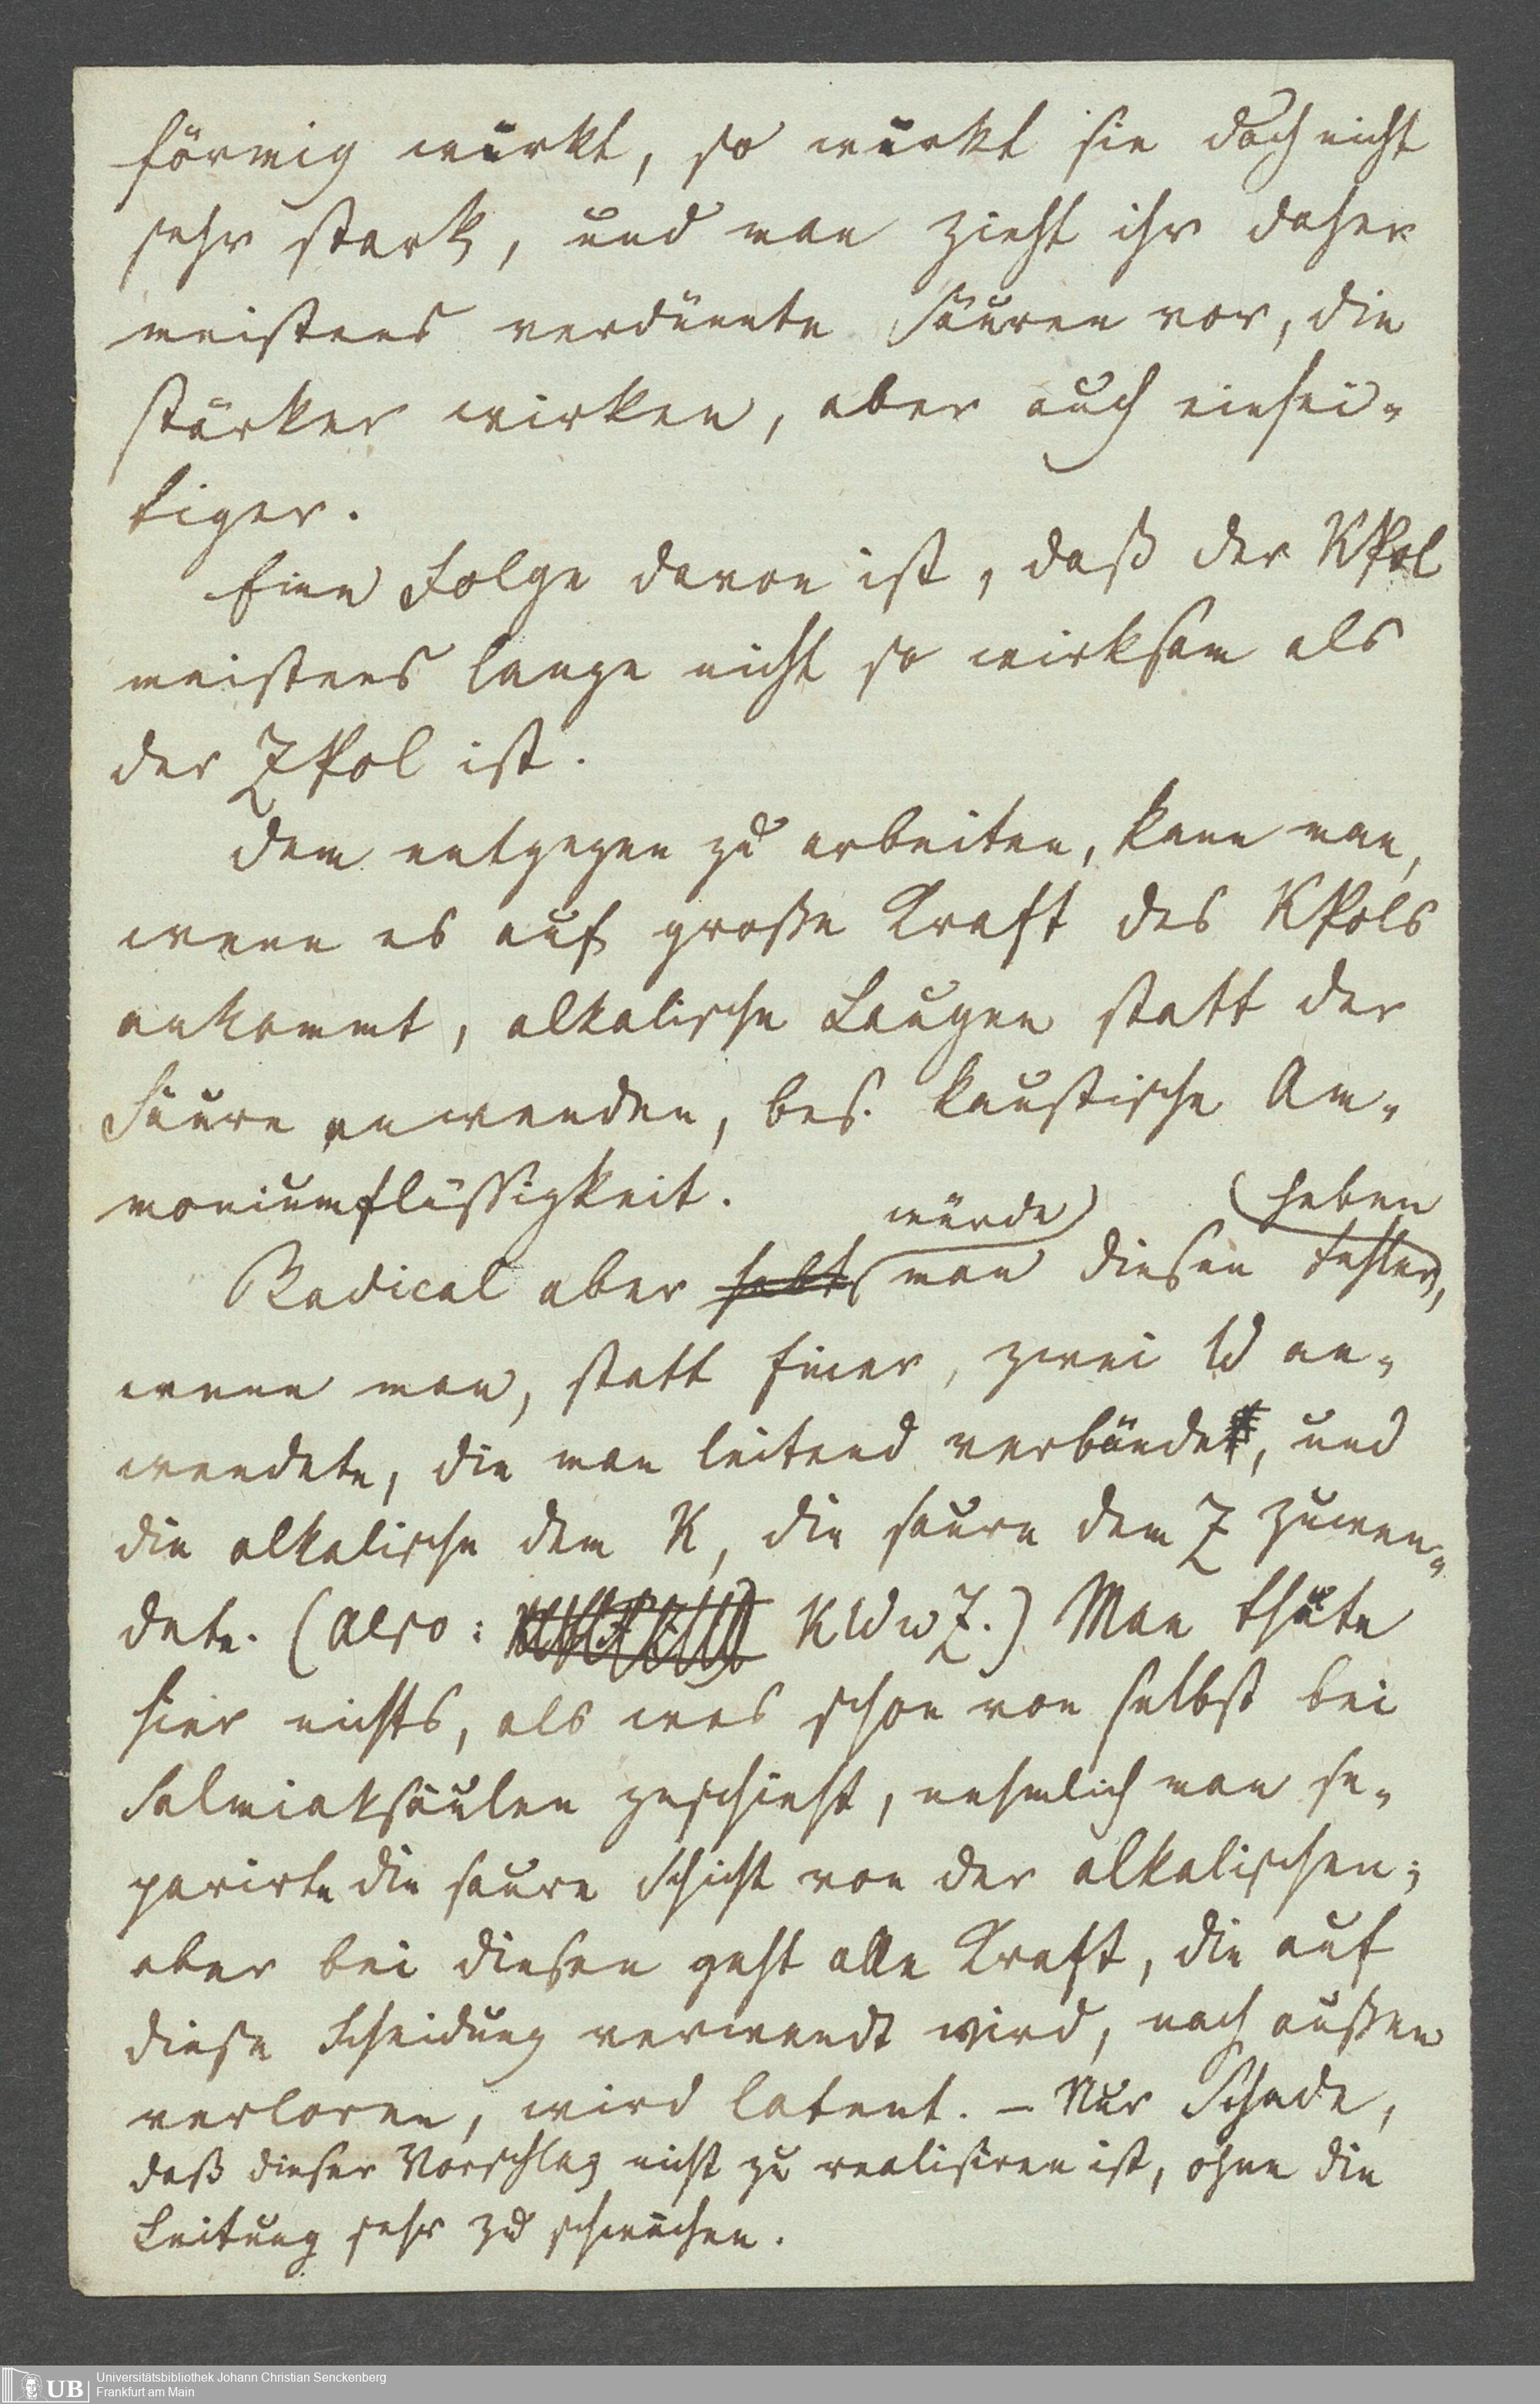 förmig würkt, so würkt sie doch nicht
sehr stark, und man zieht ihr daher
meistens verdünnte Säuren vor, die
stärker wirken, aber auch einsei-
tiger.
Eine Folge davon ist, daß der KPol
meistens lange nicht so wirksam als
der ZPol ist.
Dem entgegen zu arbeiten, kann man,
wenn es auf große Kraft des KPols
ankommt, alkalische Laugen statt der
Säure anwenden, bes. kaustische Am-
moniumflüssigkeit.
würde heben
Radical aber hebt man diesen Fehler,
wenn man, statt Einer, zwei W an-
wendete, die man leitend verbände, und
die alkalische dem K, die saure dem Z zuwen-
dete. (Also: KWwZ.) Man thäte
hier nichts, als was schon von selbst bei
Salmiaksäulen geschieht, nehmlich man se-
parirte die saure Schicht von der alkalischen;
aber bei diesen geht alle Kraft, die auf
diese Scheidung verwendt wird, nach außen
verloren, wird latent. – Nur Schade,
daß dieser Vorschlag nicht zu realisiren ist, ohne die
Leitung sehr zu schwächen.
UB
Universitätsbibliothek Johann Christian Senckenberg
Frankfurt am Main